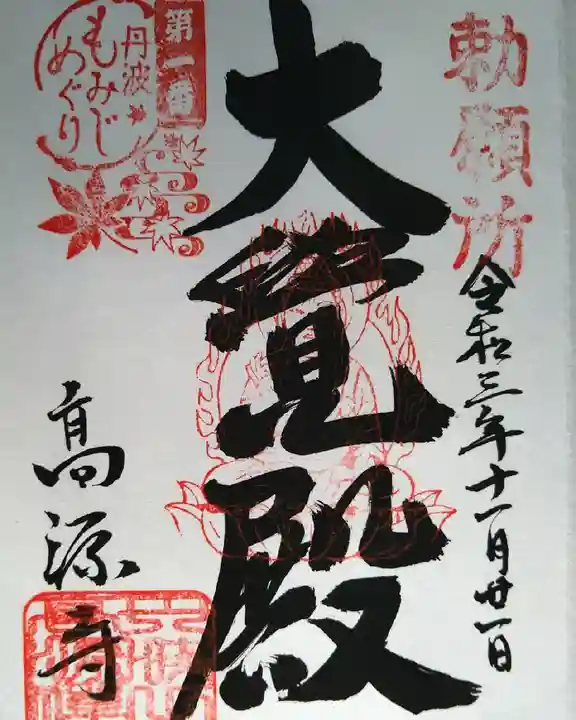 勅願所
令和三年十一月廿一日
大覚殿
第二番
丹波
もみじ
めぐり
高源寺